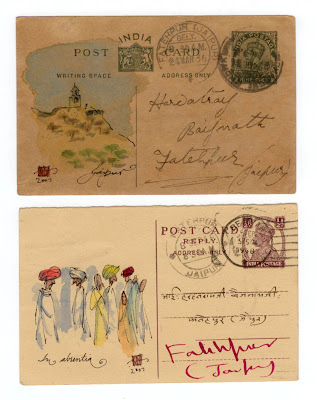 INDIA
POST CARD
WRITING SPACE
ADDRESS ONLY
FATEHPUR (JAIPUR)
Hardatray
Baijnath
Fatehpur
(Jaipur)
2007
Jaipur
POST CARD
REPLY
ADDRESS ONLY
INDIA POSTAGE
JAIPUR
फतेहपुर (जैपुर)
Fatehpur
(Jaipur)
In absentia
2007